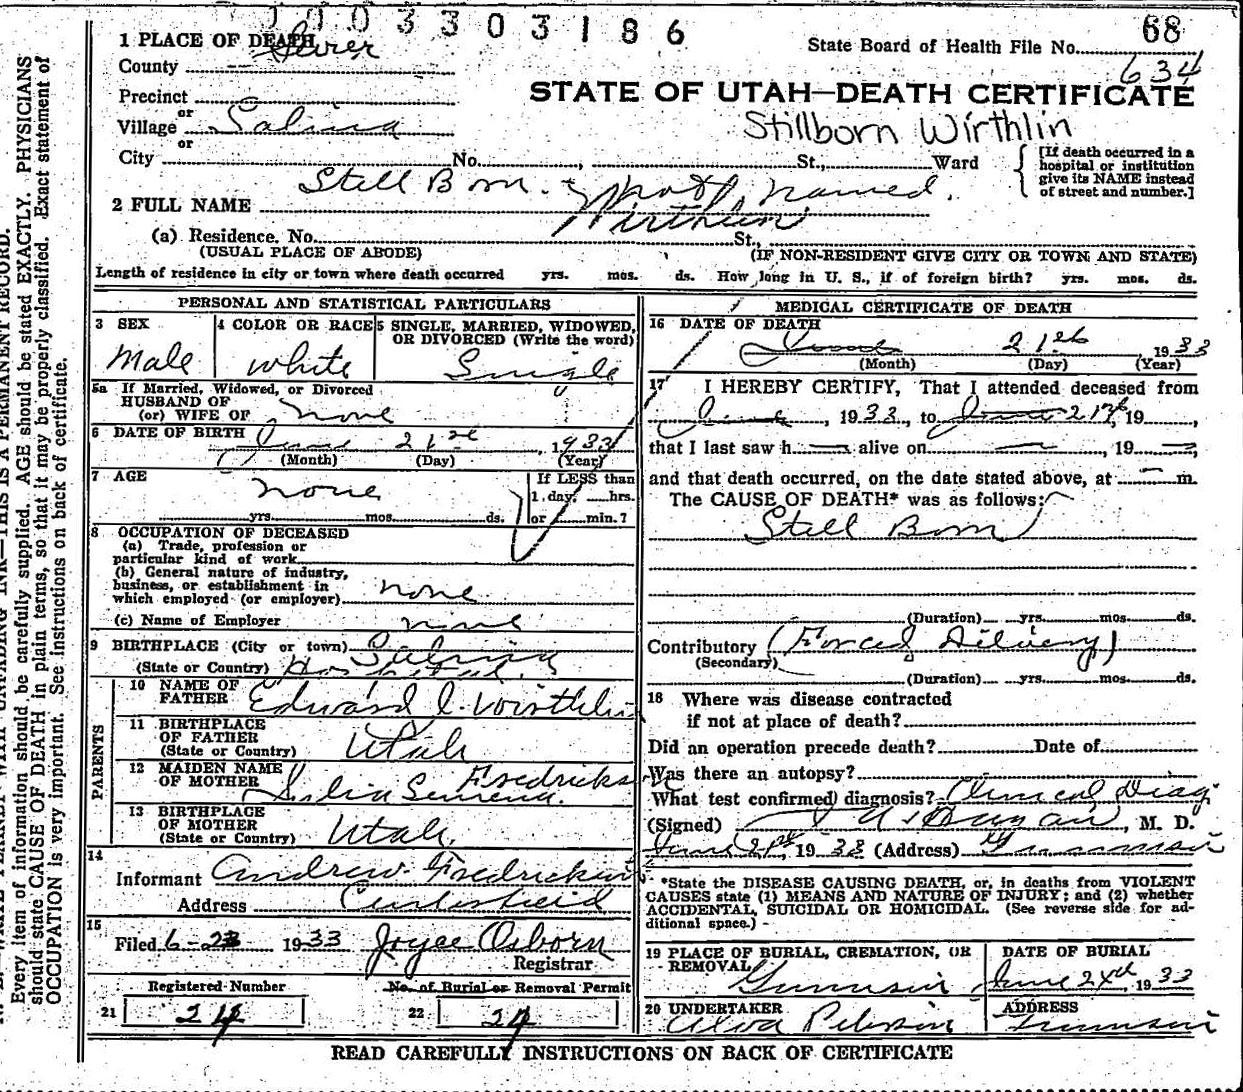 1003303186
68
1 PLACE OF DEATH
Sevier
State Board of Health File No.
634
County
Precinct
or
Village Salina
or
STATE OF UTAH—DEATH CERTIFICATE
Stillborn Wirthlin
City No. , St., Ward
[If death occurred in a
hospital or institution
give its NAME instead
of street and number.]
2 FULL NAME Still Born - not named.
Wirthlin
(a) Residence. No. St.,
(USUAL PLACE OF ABODE)
(IF NON-RESIDENT GIVE CITY OR TOWN AND STATE)
Length of residence in city or town where death occurred yrs. mos. ds. How long in U. S., if of foreign birth? yrs. mos. ds.
PERSONAL AND STATISTICAL PARTICULARS
3 SEX
Male
4 COLOR OR RACE
White
5 SINGLE, MARRIED, WIDOWED,
OR DIVORCED (Write the word)
Single
5a If Married, Widowed, or Divorced
HUSBAND OF
(or) WIFE OF none
6 DATE OF BIRTH June 21st, 1933
(Month) (Day) (Year)
7 AGE
none
yrs. mos. ds.
If LESS than
1 day, hrs.
or min.?
8 OCCUPATION OF DECEASED
(a) Trade, profession or
particular kind of work
(b) General nature of industry,
business, or establishment in
which employed (or employer) none
(c) Name of Employer none
9 BIRTHPLACE (City or town) Salina
(State or Country) Hospital.
PARENTS
10 NAME OF
FATHER Edward C. Wirthlin
11 BIRTHPLACE
OF FATHER
(State or Country) Utah
12 MAIDEN NAME
OF MOTHER
13 BIRTHPLACE
OF MOTHER
(State or Country) Utah.
14
Informant Andrew Fredrickson
Address Centerfield
15
Filed 6-23 1933 Joyce Osborn
Registrar
Registered Number
No. of Burial or Removal Permit
21 24
22 24
MEDICAL CERTIFICATE OF DEATH
16 DATE OF DEATH
June 21st 1933
(Month) (Day) (Year)
17 I HEREBY CERTIFY, That I attended deceased from
June , 1933, to June 21st, 19 ,
that I last saw h alive on , 19 ,
and that death occurred, on the date stated above, at m.
The CAUSE OF DEATH* was as follows:
Still Born
(Duration) yrs. mos. ds.
Contributory (Forced Delivery)
(Secondary)
(Duration) yrs. mos. ds.
18 Where was disease contracted
if not at place of death?
Did an operation precede death? Date of
Was there an autopsy?
What test confirmed diagnosis? Clinical Diag
(Signed) , M. D.
June 21st, 1933 (Address) Gunnison
*State the DISEASE CAUSING DEATH, or, in deaths from VIOLENT
CAUSES state (1) MEANS AND NATURE OF INJURY; and (2) whether
ACCIDENTAL, SUICIDAL OR HOMICIDAL. (See reverse side for ad-
ditional space.)
19 PLACE OF BURIAL, CREMATION, OR
REMOVAL
Gunnison
DATE OF BURIAL
June 1933
20 UNDERTAKER
ADDRESS
Gunnison
READ CAREFULLY INSTRUCTIONS ON BACK OF CERTIFICATE
Every item of information should be carefully supplied. AGE should be stated EXACTLY. PHYSICIANS
should state CAUSE OF DEATH in plain terms, so that it may be properly classified. Exact statement of
OCCUPATION is very important. See instructions on back of certificate.